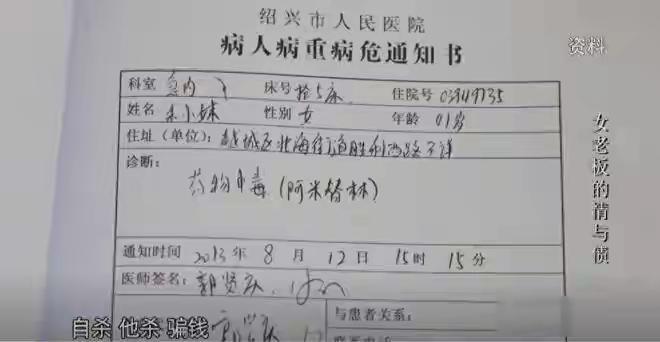 绍兴市人民医院
病人病重病危通知书
资料
科室 急内 床号 抢5床 住院号
姓名 小妹 性别 女 年龄 41岁
住址（单位）：越城区北海街道胜利西路不详
诊断：
药物中毒（阿米替林）
通知时间 2013年 8 月 12 日 15时 15分
医师签名：郭贤庆
与患者关系：
女老板的情与债
自杀 他杀 骗钱